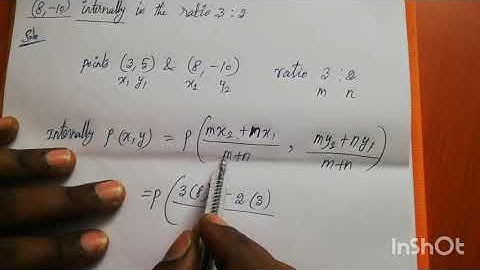 (8,-10) internally in the ratio 3:2
Soln
points (3,5) & (8,-10) ratio 3 : 2
x₁ y₁ x₂ y₂ m n
Internally P(x,y) = P(mx₂+mx₁/m+n , my₂+ny₁/m+n)
=P(3(8) -2(3)
InShOt